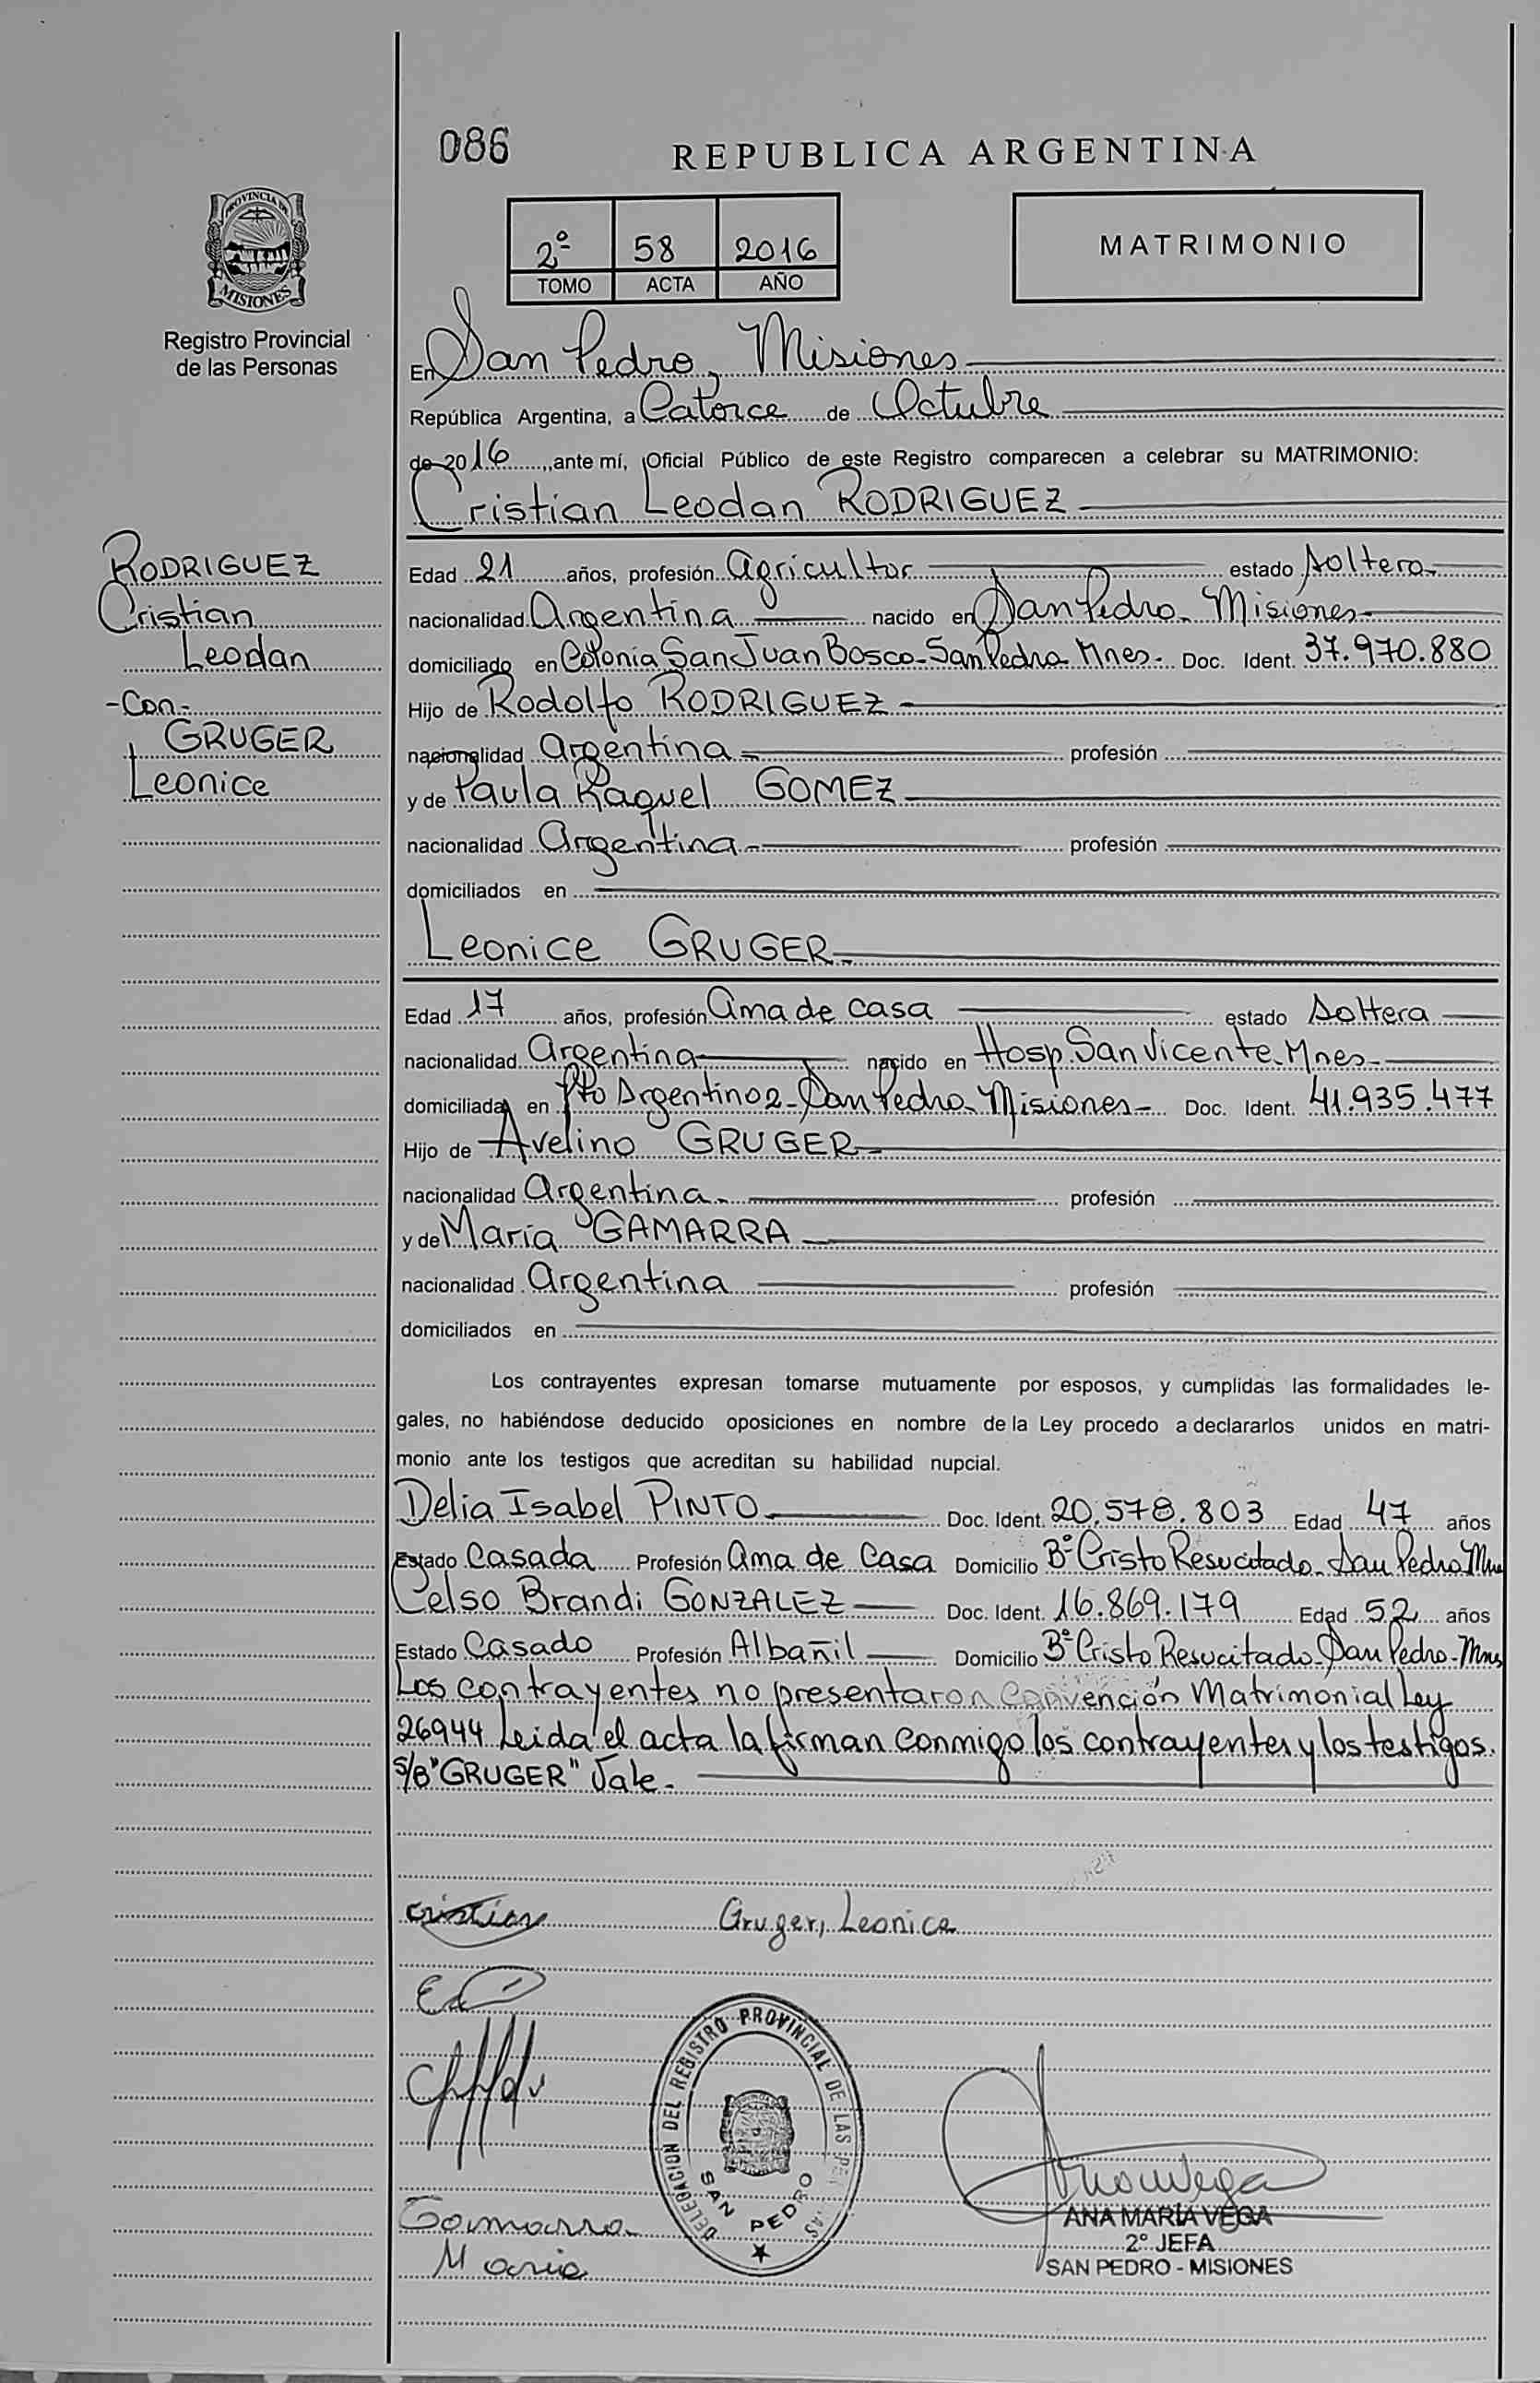 086
REPUBLICA ARGENTINA
PROVINCIA DE
MISIONES
Registro Provincial
de las Personas
2º 58 2016
TOMO ACTA AÑO
MATRIMONIO
En San Pedro, Misiones
República Argentina, a Catorce de Octubre
de 2016, ante mí, Oficial Público de este Registro comparecen a celebrar su MATRIMONIO:
Cristian Leodan RODRIGUEZ
RODRIGUEZ
Cristian
Leodan
-Con-
GRUGER
Leonice
Edad 21 años, profesión Agricultor estado Soltero
nacionalidad Argentina nacido en San Pedro - Misiones
domiciliado en Colonia San Juan Bosco - San Pedro Mnes. Doc. Ident. 37.970.880
Hijo de Rodolfo RODRIGUEZ
nacionalidad Argentina profesión
y de Paula Raquel GOMEZ
nacionalidad Argentina profesión
domiciliados en
Leonice GRUGER
Edad 17 años, profesión Ama de casa estado Soltera
nacionalidad Argentina nacido en Hosp. San Vicente - Mnes
domiciliada en Pto Argentino 2 - San Pedro - Misiones Doc. Ident. 41.935.477
Hijo de Avelino GRUGER
nacionalidad Argentina profesión
y de María GAMARRA
nacionalidad Argentina profesión
domiciliados en
Los contrayentes expresan tomarse mutuamente por esposos, y cumplidas las formalidades le-
gales, no habiéndose deducido oposiciones en nombre de la Ley procedo a declararlos unidos en matri-
monio ante los testigos que acreditan su habilidad nupcial.
Delia Isabel PINTO Doc. Ident. 20.578.803 Edad 47 años
Estado Casada Profesión Ama de Casa Domicilio Bº Cristo Resucitado - San Pedro Mnes
Celso Brandi GONZALEZ Doc. Ident. 16.869.179 Edad 52 años
Estado Casado Profesión Albañil Domicilio Bº Cristo Resucitado - San Pedro - Mnes
Los contrayentes no presentaron Convención Matrimonial Ley
26944 Leida el acta la firman conmigo los contrayentes y los testigos.
S/B "GRUGER" Vale.
Cristian Gruger, Leonice
DELEGACION DEL REGISTRO PROVINCIAL DE LAS
SAN PEDRO
Gamarra
Maria
ANA MARIA VEGA
2º JEFA
SAN PEDRO - MISIONES